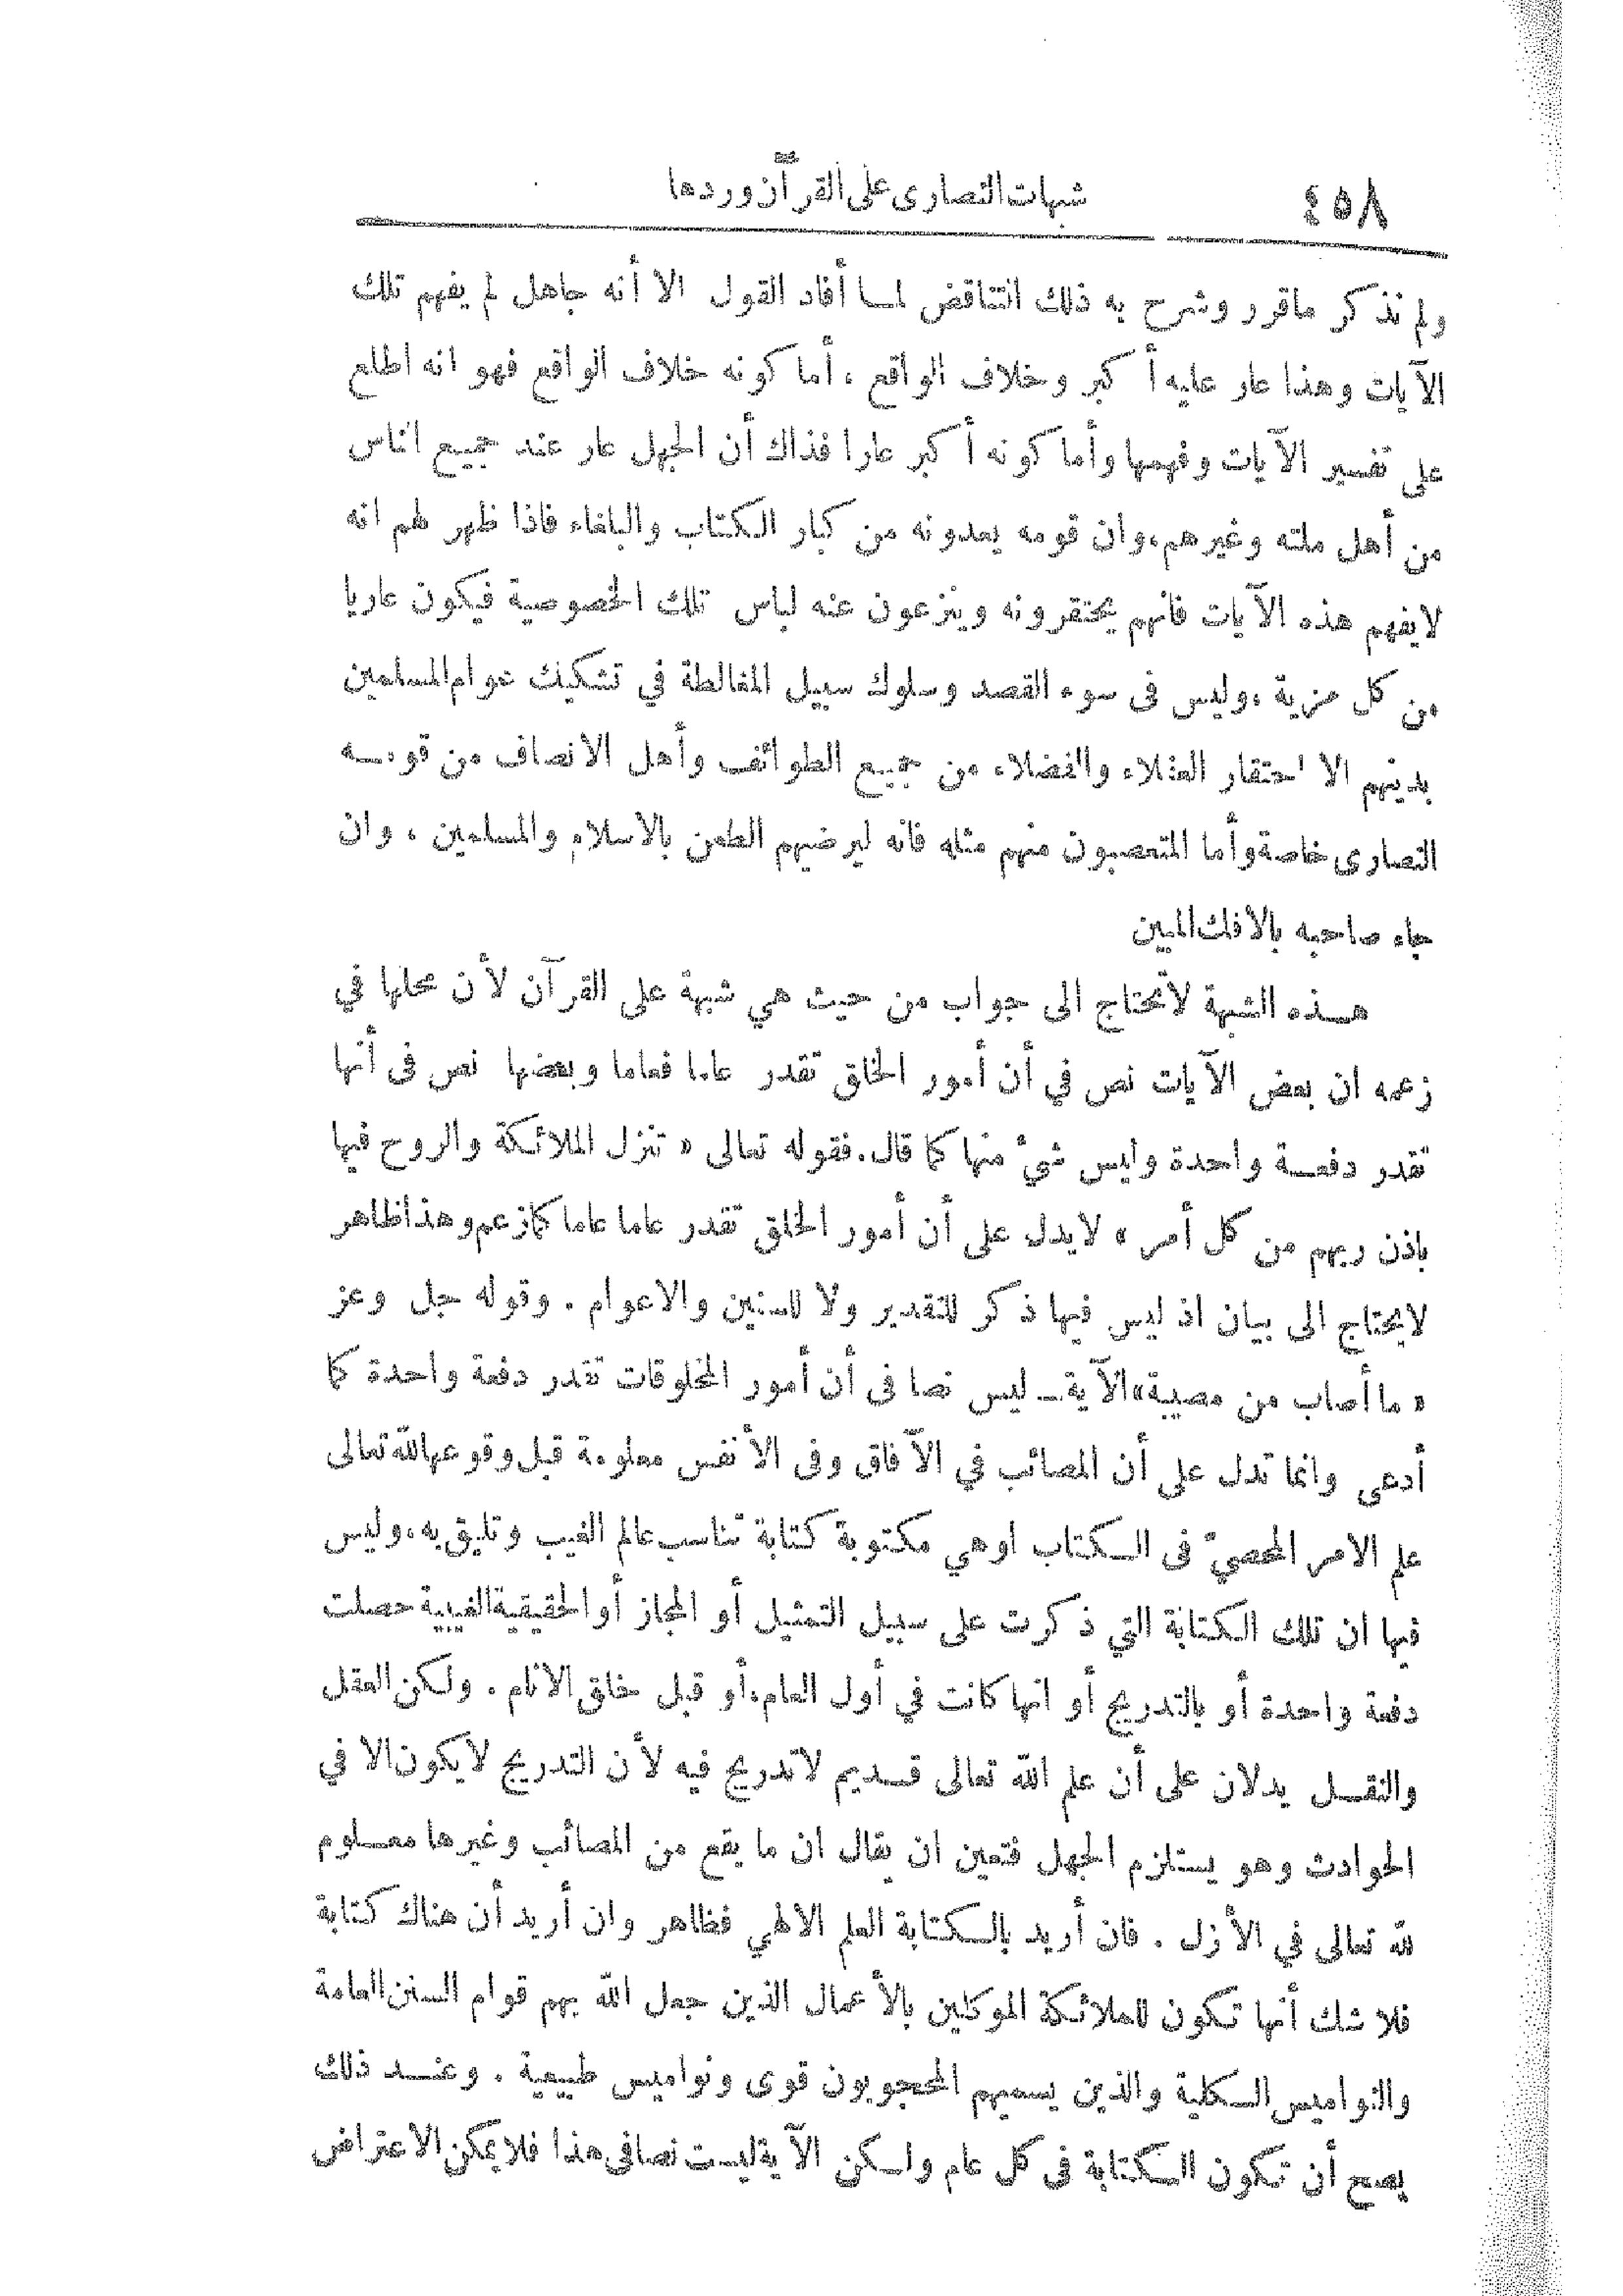 ٤٥٨
شبهات النصارى على القرآن وردها
ولم نذكر ماقرر وشرح به ذلك التناقض لما أفاد القول الا أنه جاهل لم يفهم تلك
الآيات وهذا عار عليه أكبر وخلاف الواقع ، أما كونه خلاف الواقع فهو انه اطلع
على تفسير الآيات وفهمها وأما كونه أكبر عارا فذاك أن الجهل عار عند جميع الناس
من أهل ملته وغيرهم، وان قومه يعدونه من كبار الكتاب والبلغاء فاذا ظهر لهم انه
لايفهم هذه الآيات فانهم يحتقرونه وينزعون عنه لباس تلك الخصوصية فيكون عاريا
من كل مزية ، وليس فى سوء القصد وسلوك سبيل المغالطة في تشكيك عوام المسلمين
بدينهم الا احتقار العقلاء والفضلاء من جميع الطوائف وأهل الانصاف من قومه
النصارى خاصة وأما المتعصبون منهم مثله فانه ليرضيهم الطعن بالاسلام والمسلمين ، وان
جاء صاحبه بالافك المبين
هذه الشبهة لاتحتاج الى جواب من حيث هي شبهة على القرآن لأن محلها في
زعمه ان بعض الآيات نص في أن أمور الخلق تقدر عاما فعاما وبعضها نص فى أنها
تقدر دفعة واحدة وليس شيء منها كما قال. فقوله تعالى « تنزل الملائكة والروح فيها
باذن ربهم من كل أمر » لايدل على أن أمور الخلق تقدر عاما عاما كما زعم وهذا ظاهر
لايحتاج الى بيان اذ ليس فيها ذكر للتقدير ولا للسنين والاعوام . وقوله جل وعز
« ما أصاب من مصيبة» الآية ـ ليس نصا فى أن أمور المخلوقات تقدر دفعة واحدة كما
أدعى وانما تدل على أن المصائب في الآفاق وفى الأنفس معلومة قبل وقوعها لله تعالى
علم الامر المحصيّ فى الكتاب اوهي مكتوبة كتابة تناسب عالم الغيب وتليق به، وليس
فيها ان تلك الكتابة التي ذكرت على سبيل التمثيل أو المجاز أو الحقيقية الغيبية حصلت
دفعة واحدة أو بالتدريج أو انها كانت في أول العام، أو قبل خلق الانام . ولكن العقل
والنقل يدلان على أن علم الله تعالى قديم لاتدريج فيه لأن التدريج لايكون الا في
الحوادث وهو يستلزم الجهل فتعين ان يقال ان ما يقع من المصائب وغيرها معلوم
لله تعالى في الأزل . فان أريد بالكتابة العلم الالهي فظاهر وان أريد أن هناك كتابة
فلا شك أنها تكون للملائكة الموكلين بالأعمال الذين جعل الله بهم قوام السنن العامة
والنواميس الكلية والذين يسميهم المحجوبون قوى ونواميس طبيعية . وعند ذلك
يصح أن تكون الكتابة فى كل عام ولكن الآية ليست نصافى هذا فلا يمكن الاعتراض